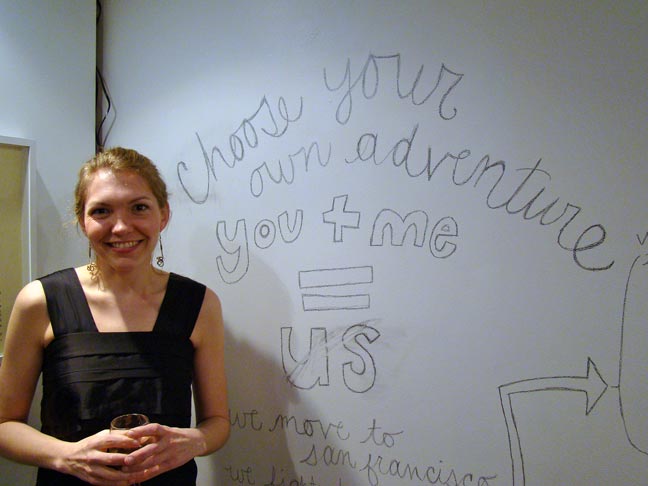 choose your
own adventure
you + me
=
us
we move to
san francisco
we